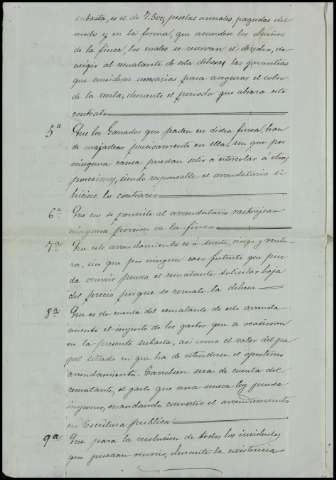 subasta, es el de 7.500 pesetas anuales pagadas del
modo y en la forma, que acuerden los dueños
de la finca, los cuales se reservan el derecho, de
exigir al rematante de esta dehesa, las garantías
que considere necesarias para asegurar el cobro
de la renta, durante el periodo que abraza este
contrato
5ª Que los Ganados que pasten en dicha finca, han
de majadear precisamente en ella, sin que por
ninguna causa puedan salir a estercolar a otras
posesiones, siendo responsable el arrendatario si
hiciere lo contrario
6ª Que no se permite al arrendatario
ninguna porcion de la finca
7ª Que este arrendamiento es a suerte, riesgo y ventu-
ra, sin que por ningun caso fortuito que pue-
da ocurrir pueda el rematante solicitar baja
del precio porque se remate la dehesa
8ª Que es de cuenta del rematante de este arrenda-
miento el importe de los gastos que se ocasionen
en la presente subasta, asi como el valor del pa-
pel sellado en que ha de estenderse el oportuno
arrendamiento. Tambien sera de cuenta del
rematante, el gasto que una nueva ley pueda
imponer, mandando convertir el arrendamiento
en Escritura publica
9ª Que para la resolucion de todos los incidentes
que puedan ocurrir, durante la existencia